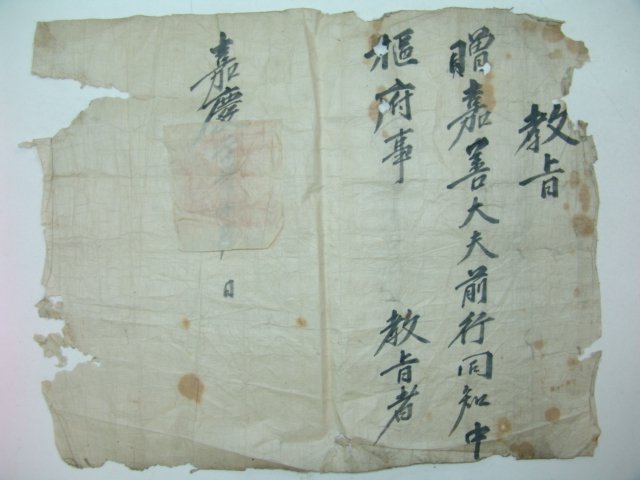 教旨
贈嘉善大夫前行同知中
樞府事 教旨者
嘉慶 日